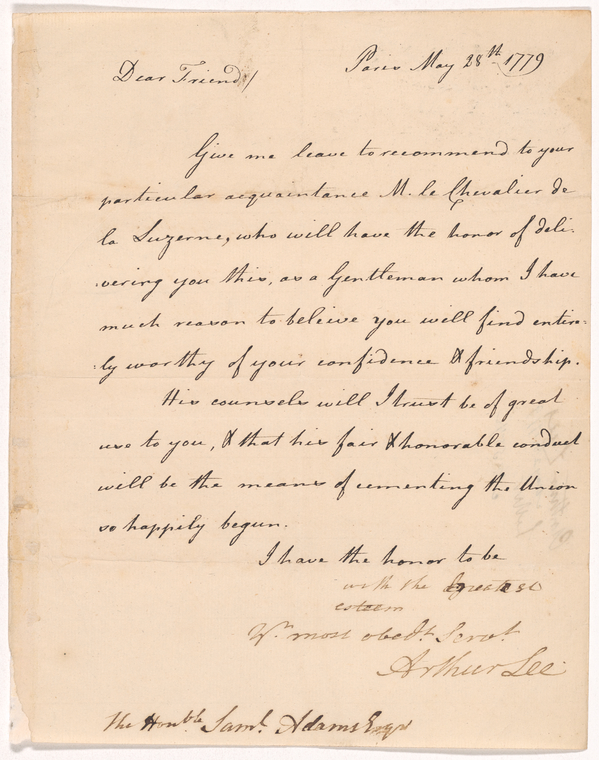 Paris May 28th 1779
Dear Friend/
Give me leave to recommend to your
particular acquaintance M. le Chevalier de
la Luzerne, who will have the honor of deli:
:vering you this, as a Gentleman whom I have
much reason to beleive you will find entire:
:ly worthy of your confidence & friendship.
His counsels will I trust be of great
use to you, & that his fair & honorable conduct
will be the means of cementing the Union
so happily begun.
I have the honor to be
with the greatest
esteem
Yr. most obedt. Servt.
Arthur Lee
The Honble Saml. Adams Esqr